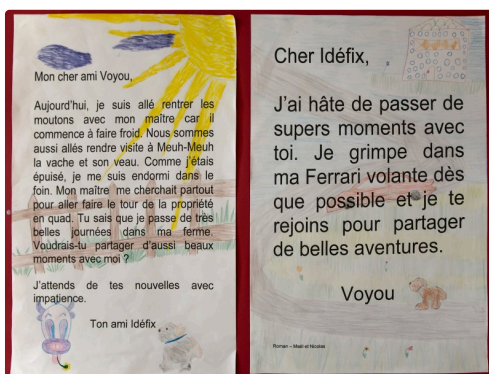 Mon cher ami Voyou,
Aujourd'hui, je suis allé rentrer les
moutons avec mon maître car il
commence à faire froid. Nous sommes
aussi allés rendre visite à Meuh-Meuh
la vache et son veau. Comme j'étais
épuisé, je me suis endormi dans le
foin. Mon maître me cherchait partout
pour aller faire le tour de la propriété
en quad. Tu sais que je passe de très
belles journées dans ma ferme.
Voudrais-tu partager d'aussi beaux
moments avec moi ?
J'attends de tes nouvelles avec
impatience.
Ton ami Idéfix
Cher Idéfix,
J'ai hâte de passer de
supers moments avec
toi. Je grimpe dans
ma Ferrari volante dès
que possible et je te
rejoins pour partager
de belles aventures.
Voyou
Roman – Maël et Nicolas